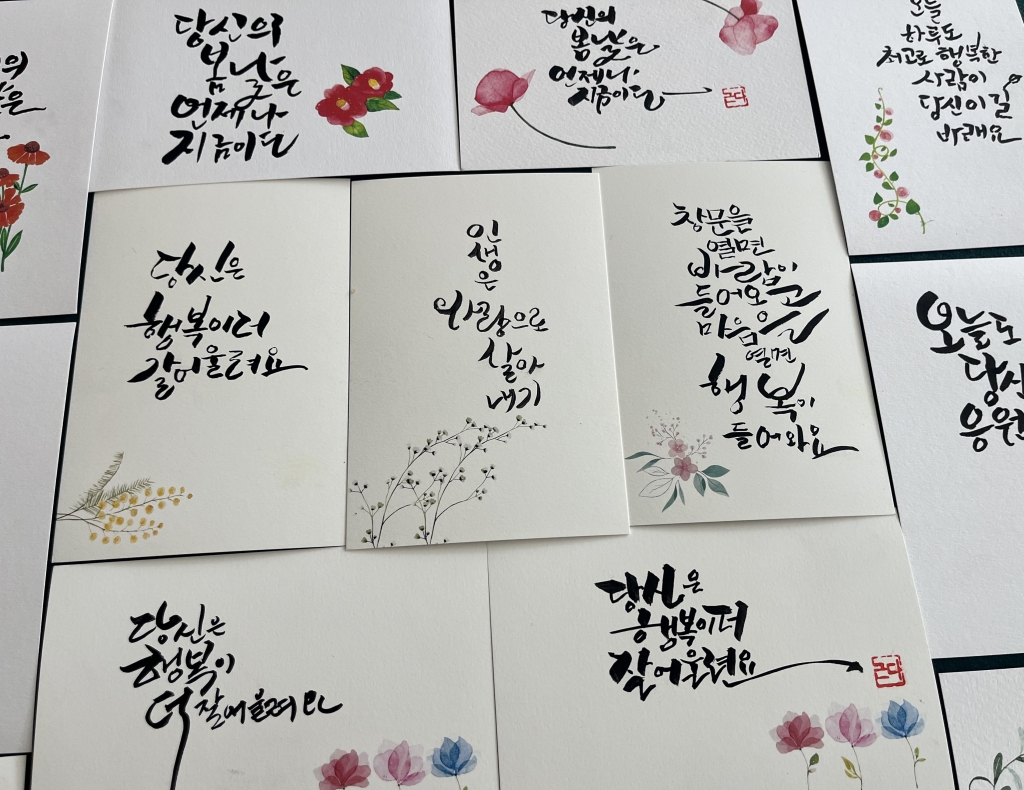 당신의
봄날은
언제나
지금이다
당신의
봄날은
언제나
지금이다
오늘
하루도
최고로 행복한
사람이
당신이길
바래요
당신은
행복이더
잘어울려요
인
생
은
사랑으로
살아
내기
창문을
열면
바람이
들어오고
마음을
열면
행복이
들어와요
오늘도
당신
응원
당신은
행복이
더 잘어울려요
당신은
행복이더
잘어울려요